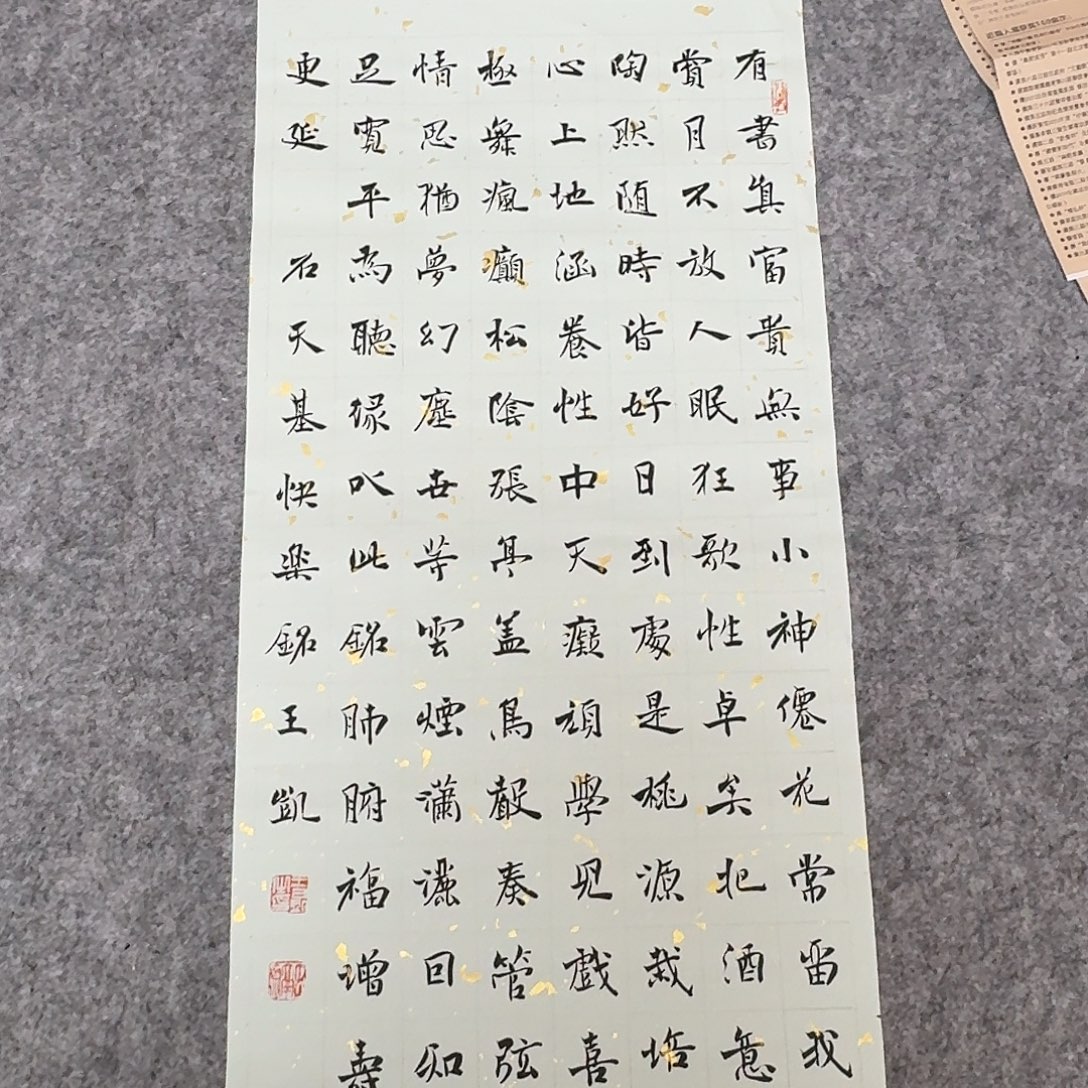 有書真富貴無事小神僊花常留我
賞月不放人眠狂歌性卓矣把酒意
陶然随時皆好日到處是桃源栽培
心上地涵養性中天癡頑學兒戲喜
極舞瘋癲松陰張亭盖鳥聲奏管弦
情思猶夢幻塵世等雲煙瀟灑回知
足寬平為聽緣以此銘肺腑福增壽
更延 石天基快樂銘王凱